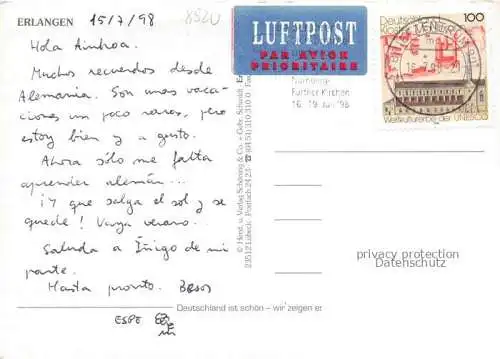 ERLANGEN
15/7/98
Hola Ainhoa.
Muchos recuerdos desde
Alemania. Son unas vaca-
ciones un poco raras, pero
estoy bien y a gusto.
Ahora sólo me falta
aprender alemán...
¡Y que salga el sol y se
quede! Vaya verano...
Saluda a Iñigo de mi
parte.
Hasta pronto. Besos
ESPE
LUFTPOST
PAR AVION
PRIORITAIRE
Nürnberg-
Further Kirchen
16.-19. Juli '98
Deutschland 100
Weltkulturerbe der UNESCO
© Hans u. Verlag Schöning & Co. + Gebr. Schmidt
23512 Lübeck, Postfach 24 23
Deutschland ist schön – wir zeigen er
privacy protection
Datenschutz